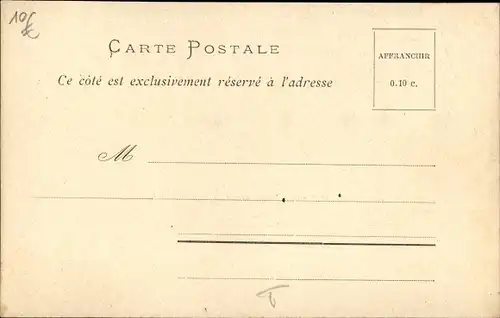 10
CARTE POSTALE
AFFRANCHIR
0.10 c.
Ce côté est exclusivement réservé à l'adresse
M